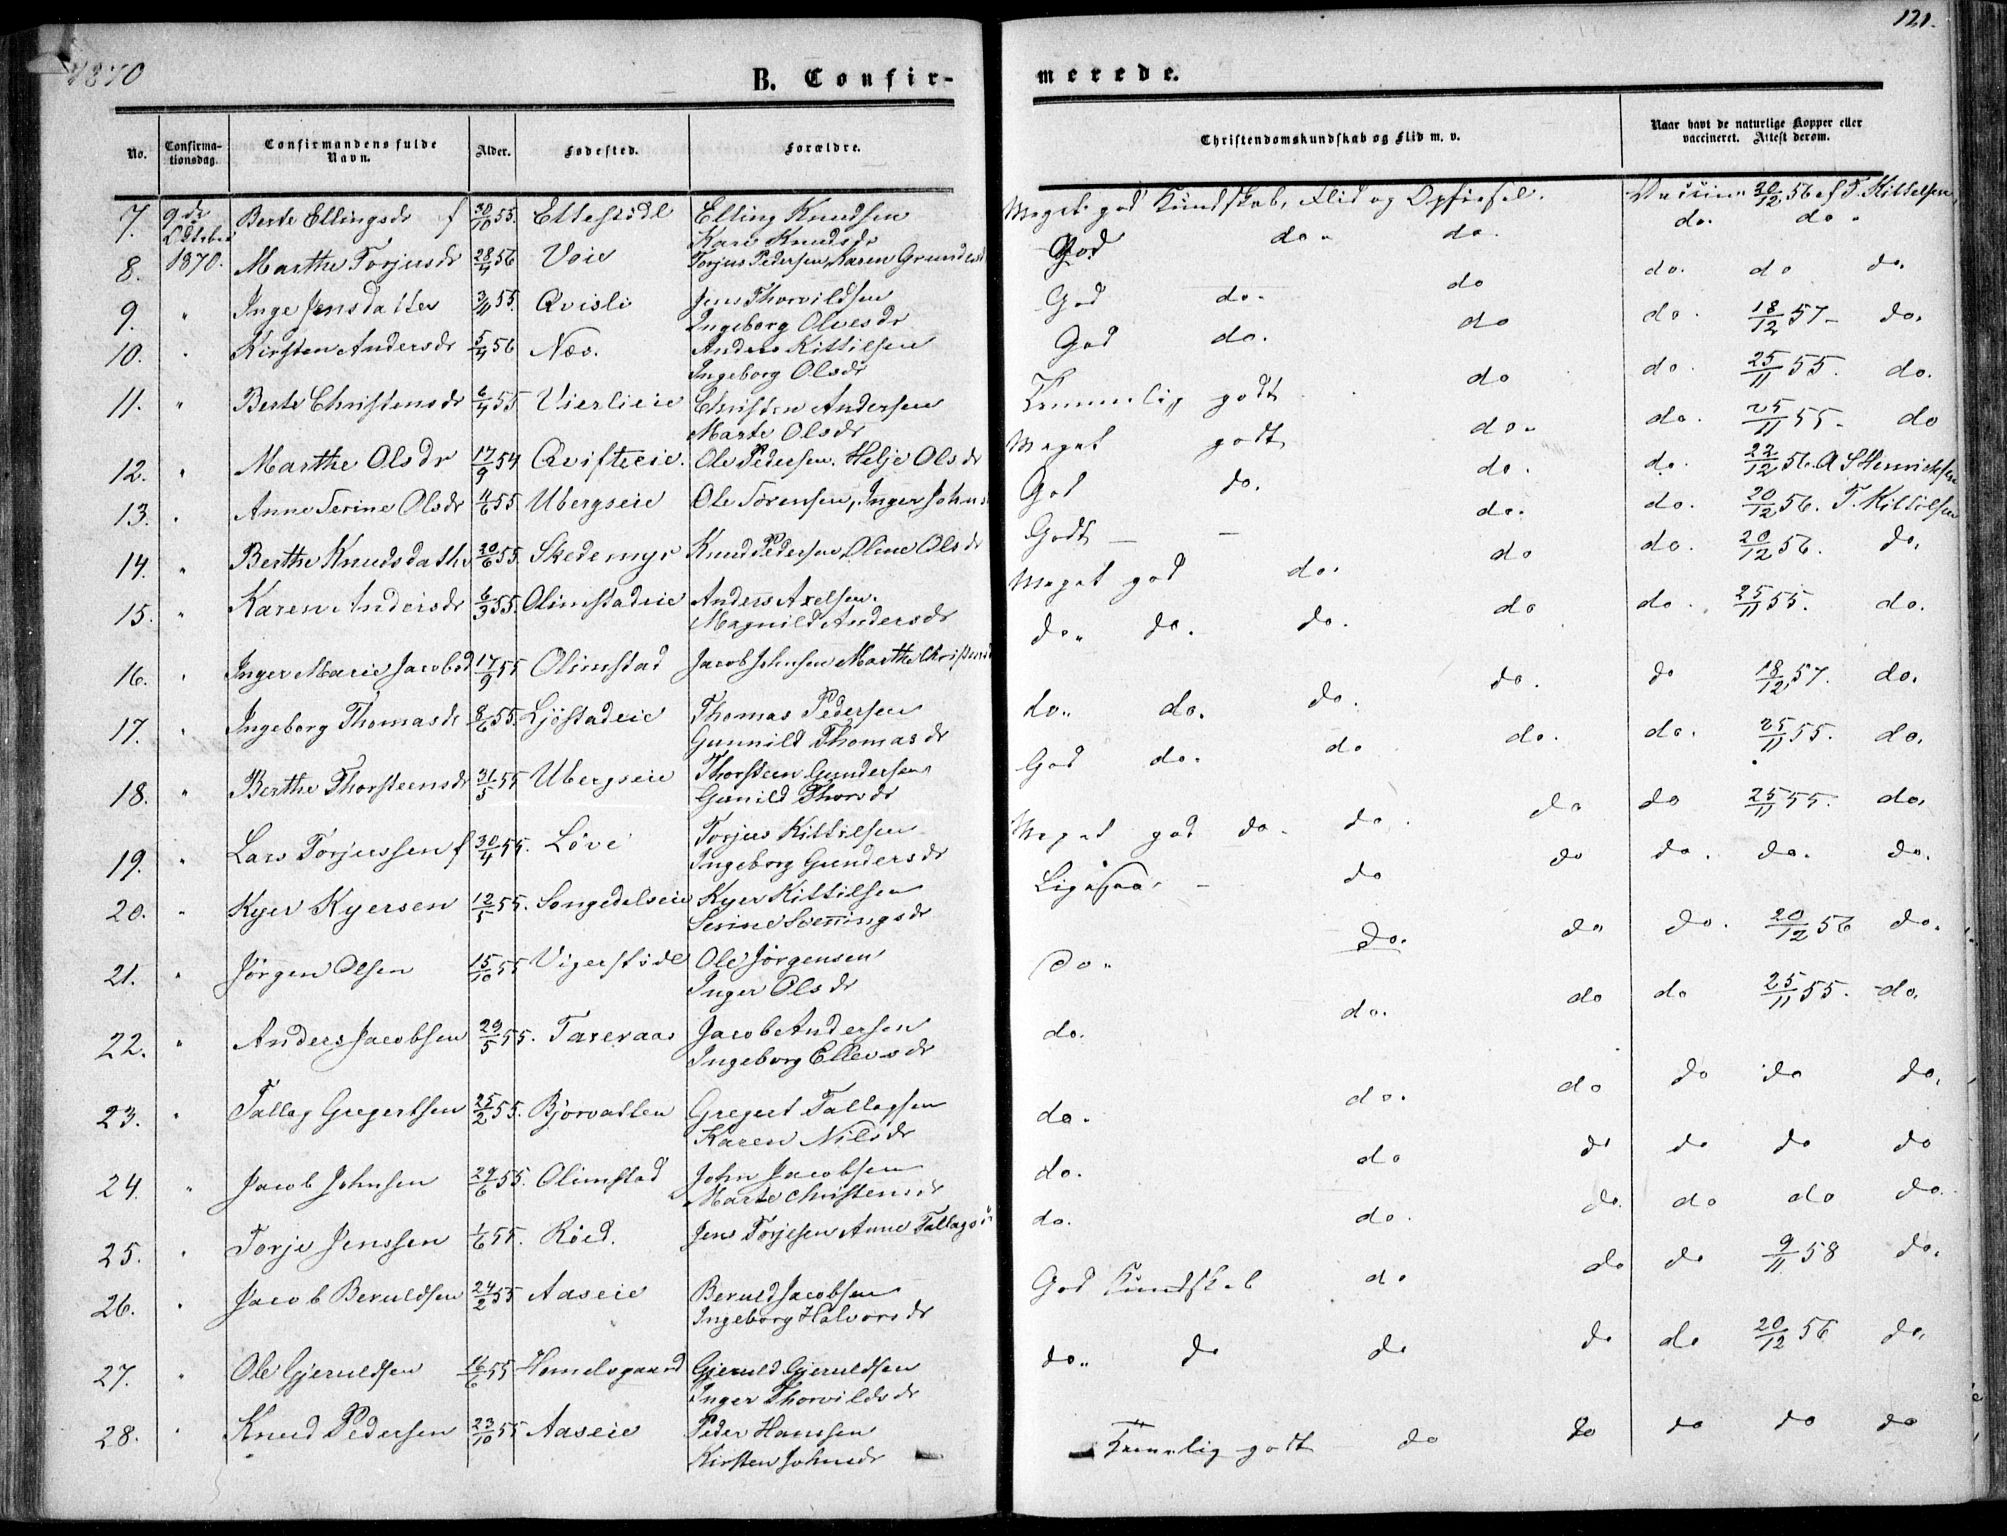 1870
B. Confir-
No. Confirma-tionsdag. Confirmandens fulde Navn. Alder. Fødested. Forældre.
7. 9de Octobe 1870. Berte Ellingsdr f 30/10 55. Ettestöl Elling Knudsen
Kari Knudsdr
8. Marthe Torjusdr 28/4 56 Voie Torjus Pedersen, Karen Grundesd
9. " Inge Jensdatter 3/11 55. Qvisli Jens Thorvildsen
Ingeborg Olvesdr
10. " Kirsten Andersdr 5/4 56 Næs. Anders Kittilsen
Ingeborg Olsdr
11. " Berte Christensdr 6/4 55 Vierlieie Christen Andersen
Marte Olsdr
12. " Marthe Olsdr 17/9 54 Ole Pedersen. Helje Olsdr
13. " Anne Terine Olsdr 4/6 55 Ubergseie Ole Torensen, Inger Johns
14. " Berthe Knudsdathr 20/6 55. Skedemyr Knud Pedersen Oline Olsdr
15. " Karen Andersdr 6/3 55. Olimstadeie Anders Axelsen.
Magnild Andersdr
16. " Inger Marie Jacobsd 17/9 55 Olimstad Jacob Johnsen Marthe Christensd
17. " Ingeborg Thomasdr 8/6 55. Ljöstadeie Thomas Pedersen
Gunnild Thomasdr
18. " Berthe Thorsteensdr 31/5 55 Ubergseie Thorsteen Gundersen
Gunild Thorsdr
19. " Lars Torjussen f 30/4 55. Löve Torjus Kittilsen
Ingeborg Gundersdr
20. " Kyer Kyersen 12/5 55. Songedalseie Kyer Kittilsen
Serine Svenningsdr
21. " Jörgen Olsen 15/10 55 Vigerstöl Ole Jörgensen
Inger Olsdr
22. " Anders Jacobsen 29/5 55. Tareraas Jacob Andersen
Ingeborg Ellevsdr
23. " Tallag Gregertsen 25/2 55. Björvatten Gregert Tallagsen
Karen Nilsdr
24. " Jacob Johnsen 29/6 55. Olimstad John Jacobsen
Marte Christensdr
25. " Torje Jenssen 1/6 55. Röed. Jens Torjesen Anne Tallags
26. " Jacob Beruldsen 24/2 55 Aaseie Beruld Jacobsen
Ingeborg Halvorsdr
27. " Ole Gjeruldsen 16/6 55 Homelsgaard Gjeruld Gjeruldsen
Inger Thorvildsdr
28. " Knud Pedersen 23/10 55 Aaseie Peder Hanssen
Kirsten Johnsdr
121.
merede.
Christendomskundskab og Flid m. v. Naar havt de naturlige Kopper eller vaccineret. Attest derom.
Meget god Kundskab, Flid og Opførsel. Vaccin. 20/12 56 af T. Kittelsen
God do. do. do. do.
God do. do do. do do.
God do. do do. 18/12 57 – do.
Temmelig godt do do. 25/11 55. do.
Meget godt do. do. 25/11 55 – do
God do. do. do. 22/12 56. A S Henrichsen
Godt – – do. do. 20/12 56. T. Kittilsen
Meget god do. do do. 20/12 56. do.
do. do. do. do do. 25/11 55. do.
do. do. do. do. do 18/12 57. do.
God do. do do. do. 25/11 55. do.
Meget god do. do. do do 25/11 55. do.
Ligesaa. – do do do. do. do.
do. do. do do. 20/12 56 do.
do. do. do do 25/11 55. do.
do. do. do do do do.
do. do do do do do
do. do. do. do do do.
God Kundskab do do do 9/11 58 do.
do. do do do do 20/12 56 do.
Temmelig godt do do do do do